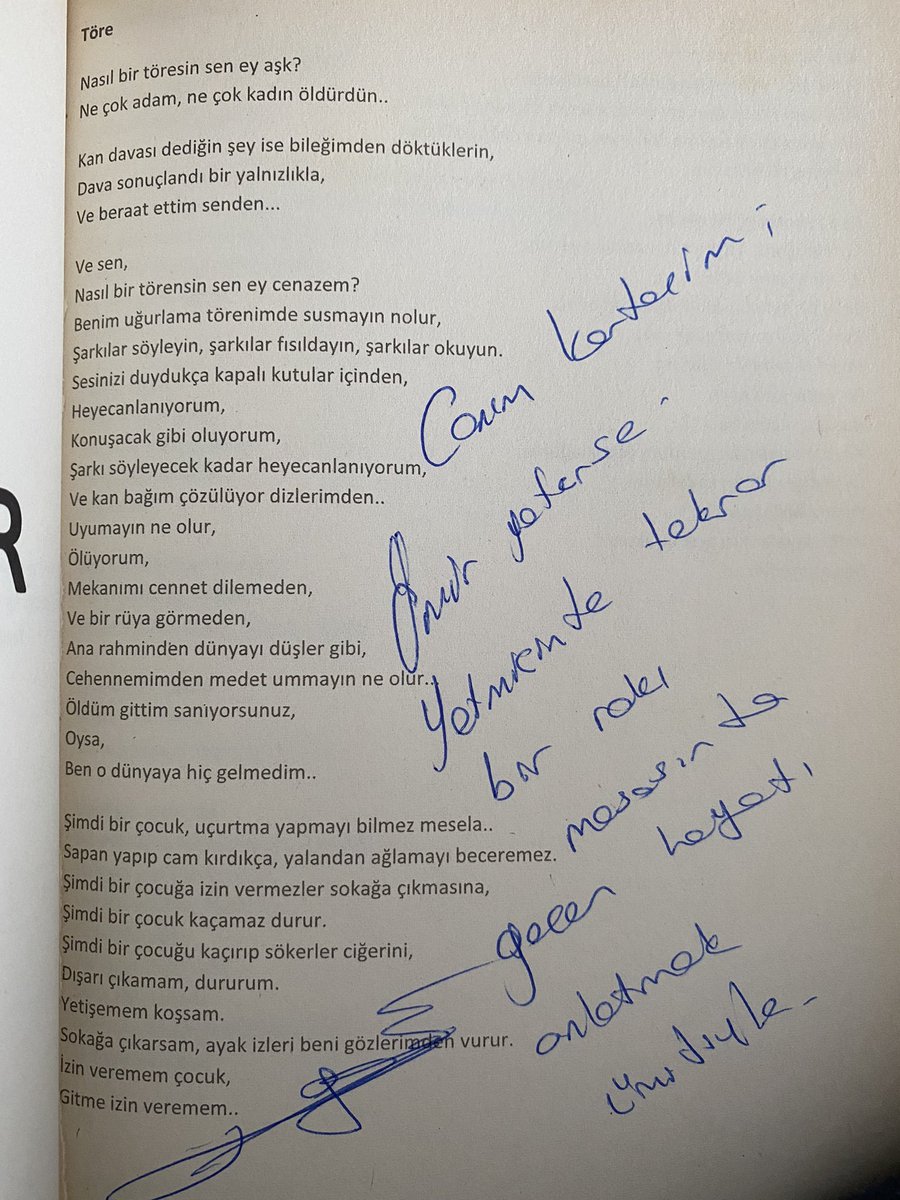 Töre
Nasıl bir töresin sen ey aşk?
Ne çok adam, ne çok kadın öldürdün..
Kan davası dediğin şey ise bileğimden döktüklerin,
Dava sonuçlandı bir yalnızlıkla,
Ve beraat ettim senden...
Ve sen,
Nasıl bir törensin sen ey cenazem?
Benim uğurlama törenimde susmayın nolur,
Şarkılar söyleyin, şarkılar fısıldayın, şarkılar okuyun.
Sesinizi duydukça kapalı kutular içinden,
Heyecanlanıyorum,
Konuşacak gibi oluyorum,
Şarkı söyleyecek kadar heyecanlanıyorum,
Ve kan bağım çözülüyor dizlerimden..
Uyumayın ne olur,
Ölüyorum,
Mekanımı cennet dilemeden,
Ve bir rüya görmeden,
Ana rahminden dünyayı düşler gibi,
Cehennemimden medet ummayın ne olur..
Öldüm gittim sanıyorsunuz,
Oysa,
Ben o dünyaya hiç gelmedim..
Şimdi bir çocuk, uçurtma yapmayı bilmez mesela..
Sapan yapıp cam kırdıkça, yalandan ağlamayı beceremez.
Şimdi bir çocuğa izin vermezler sokağa çıkmasına,
Şimdi bir çocuk kaçamaz durur.
Şimdi bir çocuğu kaçırıp sökerler ciğerini,
Dışarı çıkamam, dururum.
Yetişemem koşsam.
Sokağa çıkarsam, ayak izleri beni gözlerimden vurur.
İzin veremem çocuk,
Gitme izin veremem..
R
Canım kardeşim;
Ömür yeterse.
Yetmişimde tekrar
bir rakı
masasında
geçen hayatı
anlatmak
ümidiyle.